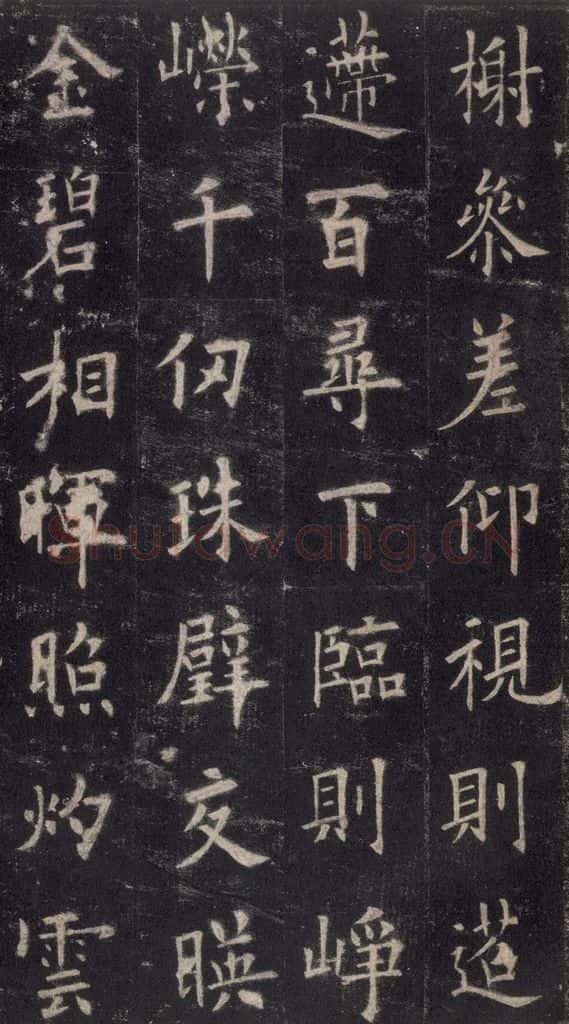 榭參差仰視則迢
遰百尋下臨則崢
嶸千仞珠璧交暎
金碧相暉照灼雲
Shufawang.CN